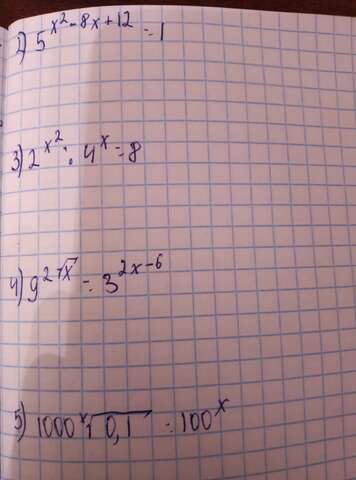 2) 5^{x²-8x+12} = 1
3) 2^{x²} : 4^x = 8
4) 9^{2+√x} = 3^{2x-6}
5) 1000 ˣ√0,1 = 100^x